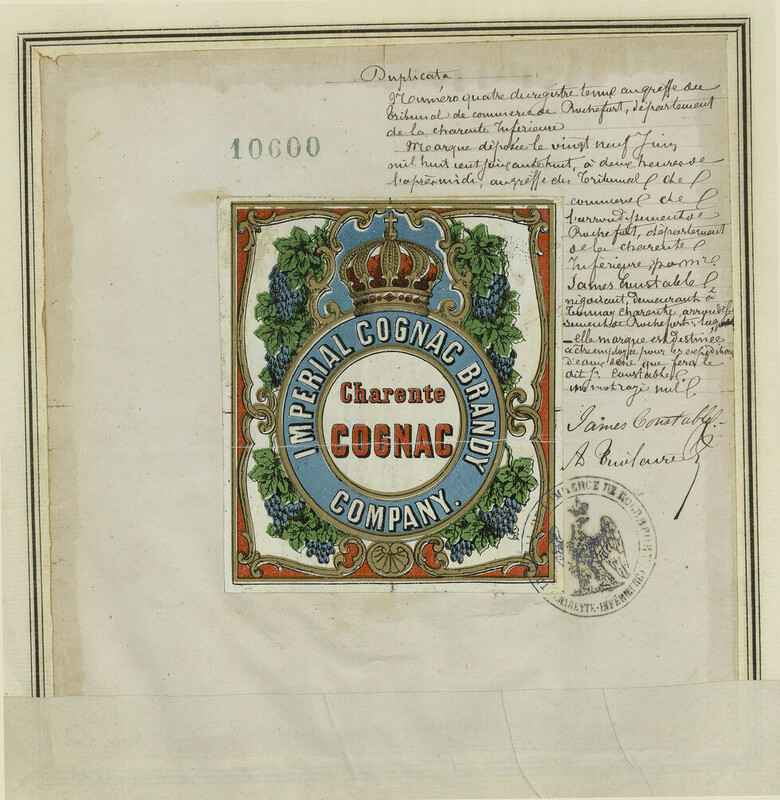 Duplicata.
Numéro quatre du registre tenu au greffe du
tribunal de commerce de Rochefort, département
de la charente Inférieure
Marque déposée le vingt neuf Juin
mil huit cent cinquante huit, à deux heures de
l'après midi, au greffe du Tribunal de
commerce de
l'arrondissement de
Rochefort, département
de la charente
Inférieure, par mr.
James Constable
négociant, demeurant à
Tonnay charente, arrondis-
sement de Rochefort; laqu
elle marque est destinée
à être employée pour les expéditions
d'eaux de vie que fera le
dit sr. Constable
un mot rayé nul
James Constable
10600
IMPERIAL COGNAC BRANDY
COMPANY.
Charente
COGNAC
COMMERCE DE ROCHEFORT
CHARENTE-INFÉRIEURE